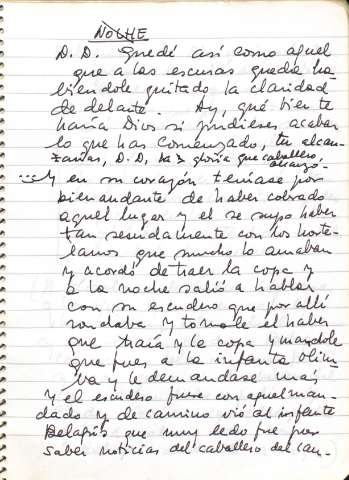 NOCHE
D. D. Quedé así como aquel
que a las escuras queda ha-
biendole quitado la claridad
de delante. Ay, qué bien te
haría Dios si pudieses acabar
lo que has comenzado, tu alcan-
zarías, D. D. la gloria que caballero,
alcanzó.
Y en su corazón teníase por
bienandante de haber cobrado
aquel lugar y el se supo haber
tan sesudamente con los horte-
lanos que mucho lo amaban
y acordó de traer la copa y
a la noche salió a hablar
con su escudero que por allí
rondaba y tomole el haber
que traía y la copa y mandole
que fues a la infanta Olim-
ba y le demandase más
y el escudero fuese con aquel man-
dado y de camino vió al infante
Belagrís que muy ledo fue por
saber noticias del caballero del can-